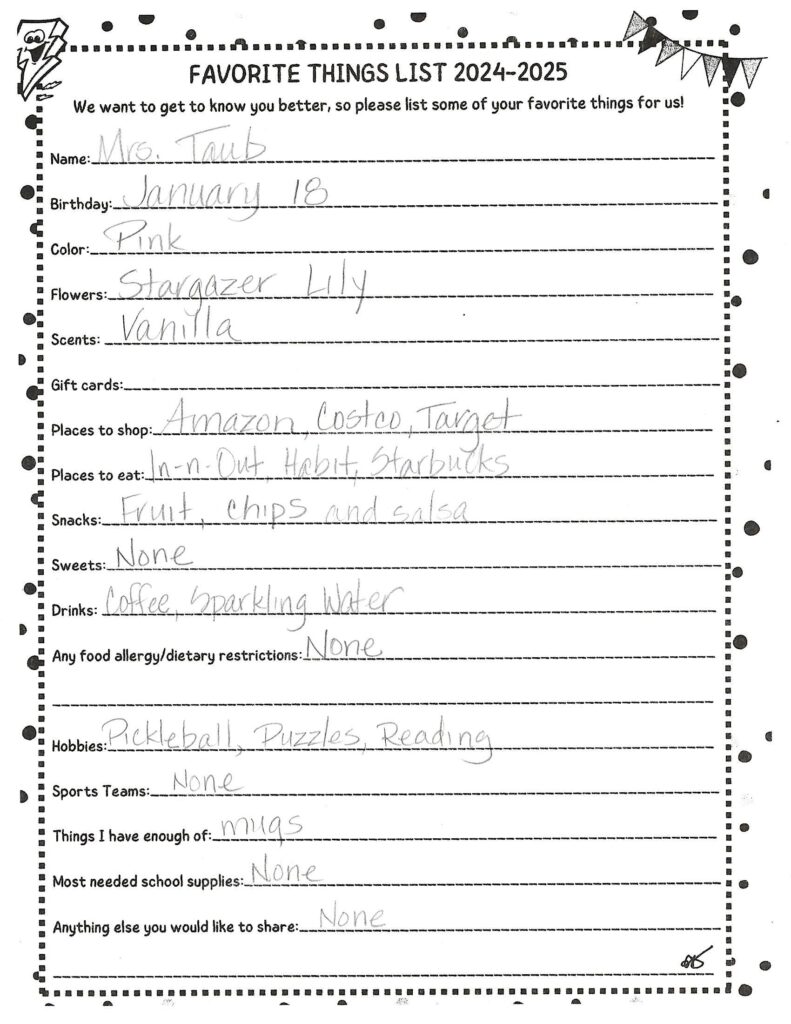 FAVORITE THINGS LIST 2024-2025
We want to get to know you better, so please list some of your favorite things for us!
Name: Mrs. Taub
Birthday: January 18
Color: Pink
Flowers: Stargazer Lily
Scents: Vanilla
Gift cards:
Places to shop: Amazon, Costco, Target
Places to eat: In-n-Out, Habit, Starbucks
Snacks: Fruit, chips and salsa
Sweets: None
Drinks: Coffee, Sparkling Water
Any food allergy/dietary restrictions: None
Hobbies: Pickleball, Puzzles, Reading
Sports Teams: None
Things I have enough of: mugs
Most needed school supplies: None
Anything else you would like to share: None